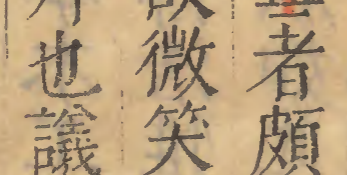 者頗
微笑
也議